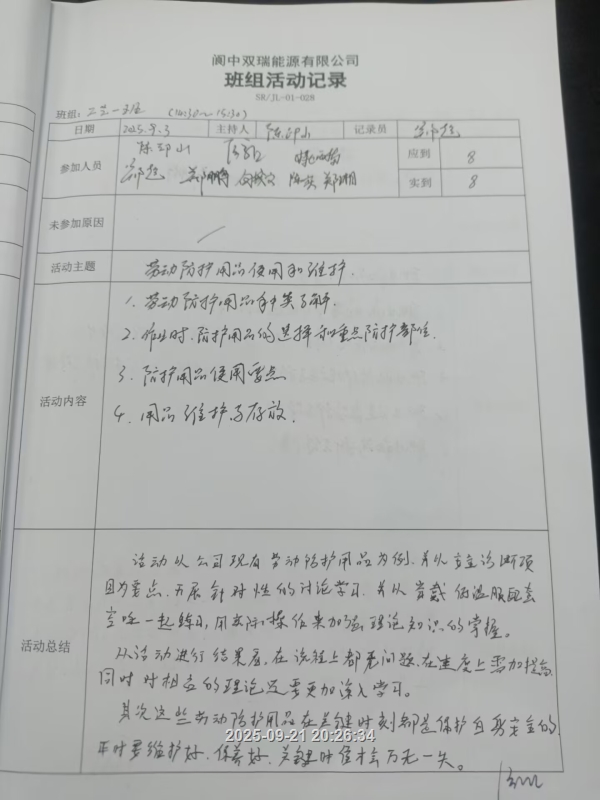 阆中双瑞能源有限公司
班组活动记录
SR/JL-01-028
班组: 工艺一班 (14:30~15:30)
日期 2025.9.3 主持人 陈邵山 记录员
参加人员 陈邵山 应到 8
郑湘 实到 8
未参加原因
活动主题 劳动防护用品使用和维护.
活动内容
1. 劳动防护用品种类了解.
2. 作业时.防护用品的选择和重点防护部位.
3. 防护用品使用要点
4. 用品维护与存放.
活动总结
该活动以公司现有劳动防护用品为例.并以安全诊断项
目为要点.开展针对性的讨论学习.并以肖戴低温服配套
一起练习.用实际操作来加强理论知识的掌握。
从活动进行结果看.在流程上都无问题.在速度上需加提高
同时对相应的理论还要更加深入学习。
其次这些劳动防护用品在关键时刻都是保护自身安全的.
平时要维护好.保养好.关键时候才会万无一失。
2025-09-21 20:26:34